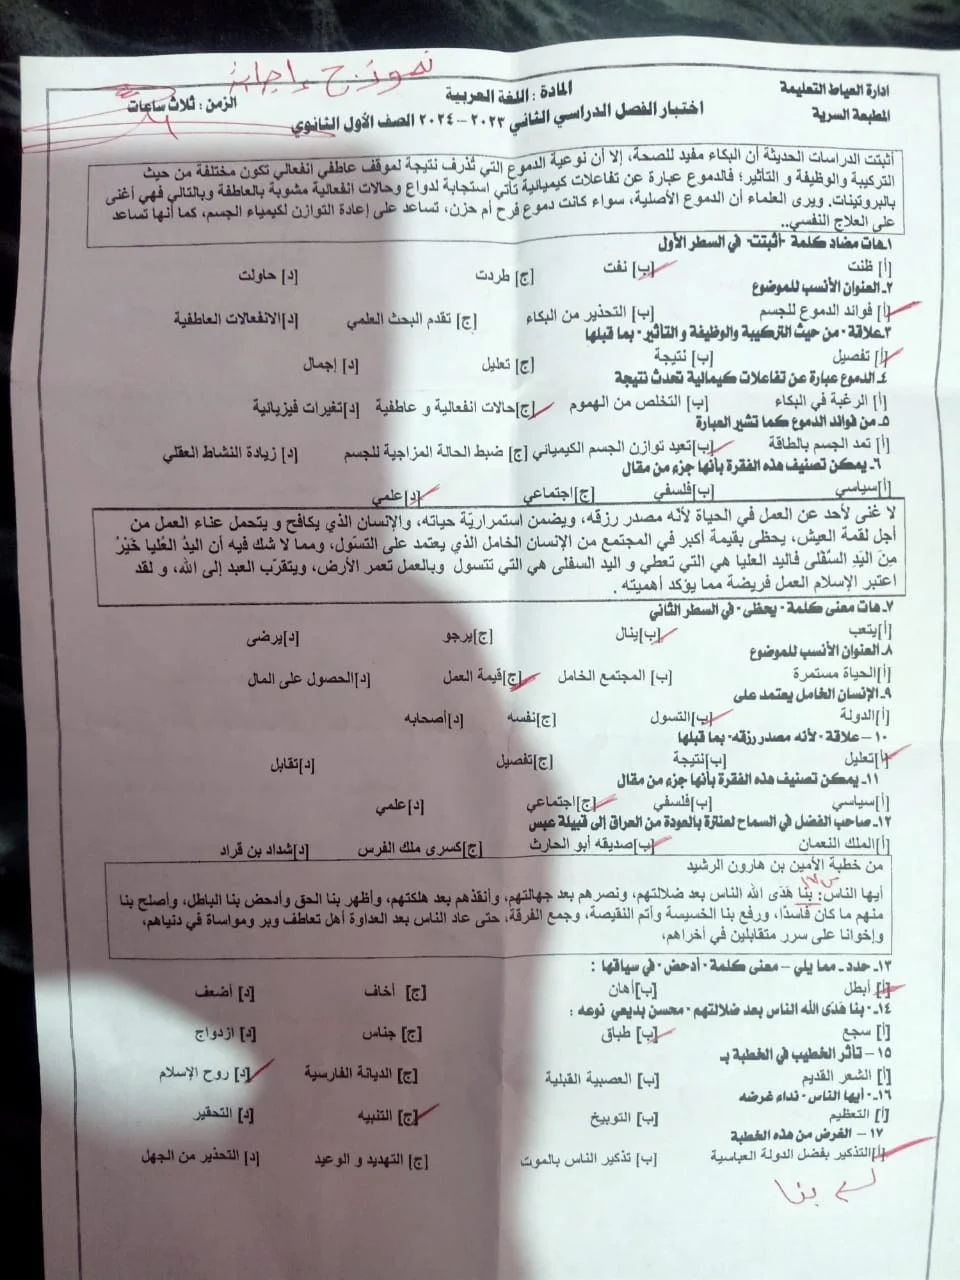 نموذج إجابة
ادارة العياط التعليمة
المادة : اللغة العربية
الزمن : ثلاث ساعات
المطبعة السرية
اختبار الفصل الدراسي الثاني ٢٠٢٣ – ٢٠٢٤ الصف الأول الثانوي
أثبتت الدراسات الحديثة أن البكاء مفيد للصحة، إلا أن نوعية الدموع التي تُذرف نتيجة لموقف عاطفي انفعالي تكون مختلفة من حيث
التركيبة والوظيفة و التأثير؛ فالدموع عبارة عن تفاعلات كيميائية تأتي استجابة لدواع وحالات انفعالية مشوبة بالعاطفة وبالتالي فهي أغنى
بالبروتينات. ويرى العلماء أن الدموع الأصلية، سواء كانت دموع فرح أم حزن، تساعد على إعادة التوازن لكيمياء الجسم، كما أنها تساعد
على العلاج النفسي..
١ـ هات مضاد كلمة "أثبتت" في السطر الأول
[أ] ظنت [ب] نفت [ج] طردت [د] حاولت
٢ـ العنوان الأنسب للموضوع
[أ] فوائد الدموع للجسم [ب] التحذير من البكاء [ج] تقدم البحث العلمي [د] الانفعالات العاطفية
٣ـ علاقة "من حيث التركيبة والوظيفة و التأثير" بما قبلها
[أ] تفصيل [ب] نتيجة [ج] تعليل [د] إجمال
٤ـ الدموع عبارة عن تفاعلات كيمالية تحدث نتيجة
[أ] الرغبة في البكاء [ب] التخلص من الهموم [ج] حالات انفعالية و عاطفية [د] تغيرات فيزيائية
٥ـ من فوائد الدموع كما تشير العبارة
[أ] تمد الجسم بالطاقة [ب] تعيد توازن الجسم الكيميائي [ج] ضبط الحالة المزاجية للجسم [د] زيادة النشاط العقلي
٦ـ يمكن تصنيف هذه الفقرة بأنها جزء من مقال
[أ] سياسي [ب] فلسفي [ج] اجتماعي [د] علمي
لا غنى لأحد عن العمل في الحياة لأنّه مصدر رزقه، ويضمن استمراريّة حياته، والإنسان الذي يكافح و يتحمل عناء العمل من
أجل لقمة العيش، يحظى بقيمة أكبر في المجتمع من الإنسان الخامل الذي يعتمد على التسوّل، ومما لا شك فيه أن اليدُ العُليا خَيْرٌ
مِنَ اليَدِ السُّفْلى فاليد العليا هي التي تعطي و اليد السفلى هي التي تتسول وبالعمل تعمر الأرض، ويتقرّب العبد إلى الله، و لقد
اعتبر الإسلام العمل فريضة مما يؤكد أهميته .
٧ـ هات معنى كلمة "يحظى" في السطر الثاني
[أ] يتعب [ب] ينال [ج] يرجو [د] يرضى
٨ـ العنوان الأنسب للموضوع
[أ] الحياة مستمرة [ب] المجتمع الخامل [ج] قيمة العمل [د] الحصول على المال
٩ـ الإنسان الخامل يعتمد على
[أ] الدولة [ب] التسول [ج] نفسه [د] أصحابه
١٠ – علاقة "لأنه مصدر رزقه" بما قبلها
[أ] تعليل [ب] نتيجة [ج] تفصيل [د] تقابل
١١ـ يمكن تصنيف هذه الفقرة بأنها جزء من مقال
[أ] سياسي [ب] فلسفي [ج] اجتماعي [د] علمي
١٢ـ صاحب الفضل في السماح لعنترة بالعودة من العراق إلى قبيلة عبس
[أ] الملك النعمان [ب] صديقه أبو الحارث [ج] كسرى ملك الفرس [د] شداد بن قراد
من خطبة الأمين بن هارون الرشيد
أيها الناس: بنا هَدَى الله الناس بعد ضلالتهم، ونصرهم بعد جهالتهم، وأنقذهم بعد هلكتهم، وأظهر بنا الحق وأدحض بنا الباطل، وأصلح بنا
منهم ما كان فاسدًا، ورفع بنا الخسيسة وأتم النقيصة، وجمع الفرقة، حتى عاد الناس بعد العداوة أهل تعاطف وبر ومواساة في دنياهم،
وإخوانا على سرر متقابلين في أخراهم،
١٣ـ حدد ـ مما يلي – معنى كلمة "أدحض" في سياقها :
[أ] أبطل [ب] أهان [ج] أخاف [د] أضعف
١٤ـ "بنا هَدَى الله الناس بعد ضلالتهم" محسن بديعي نوعه :
[أ] سجع [ب] طباق [ج] جناس [د] ازدواج
١٥ – تأثر الخطيب في الخطبة بـ
[أ] الشعر القديم [ب] العصبية القبلية [ج] الديانة الفارسية [د] روح الإسلام
١٦ـ "أيها الناس" نداء غرضه
[أ] التعظيم [ب] التوبيخ [ج] التنبيه [د] التحقير
١٧ – الغرض من هذه الخطبة
[أ] التذكير بفضل الدولة العباسية [ب] تذكير الناس بالموت [ج] التهديد و الوعيد [د] التحذير من الجهل